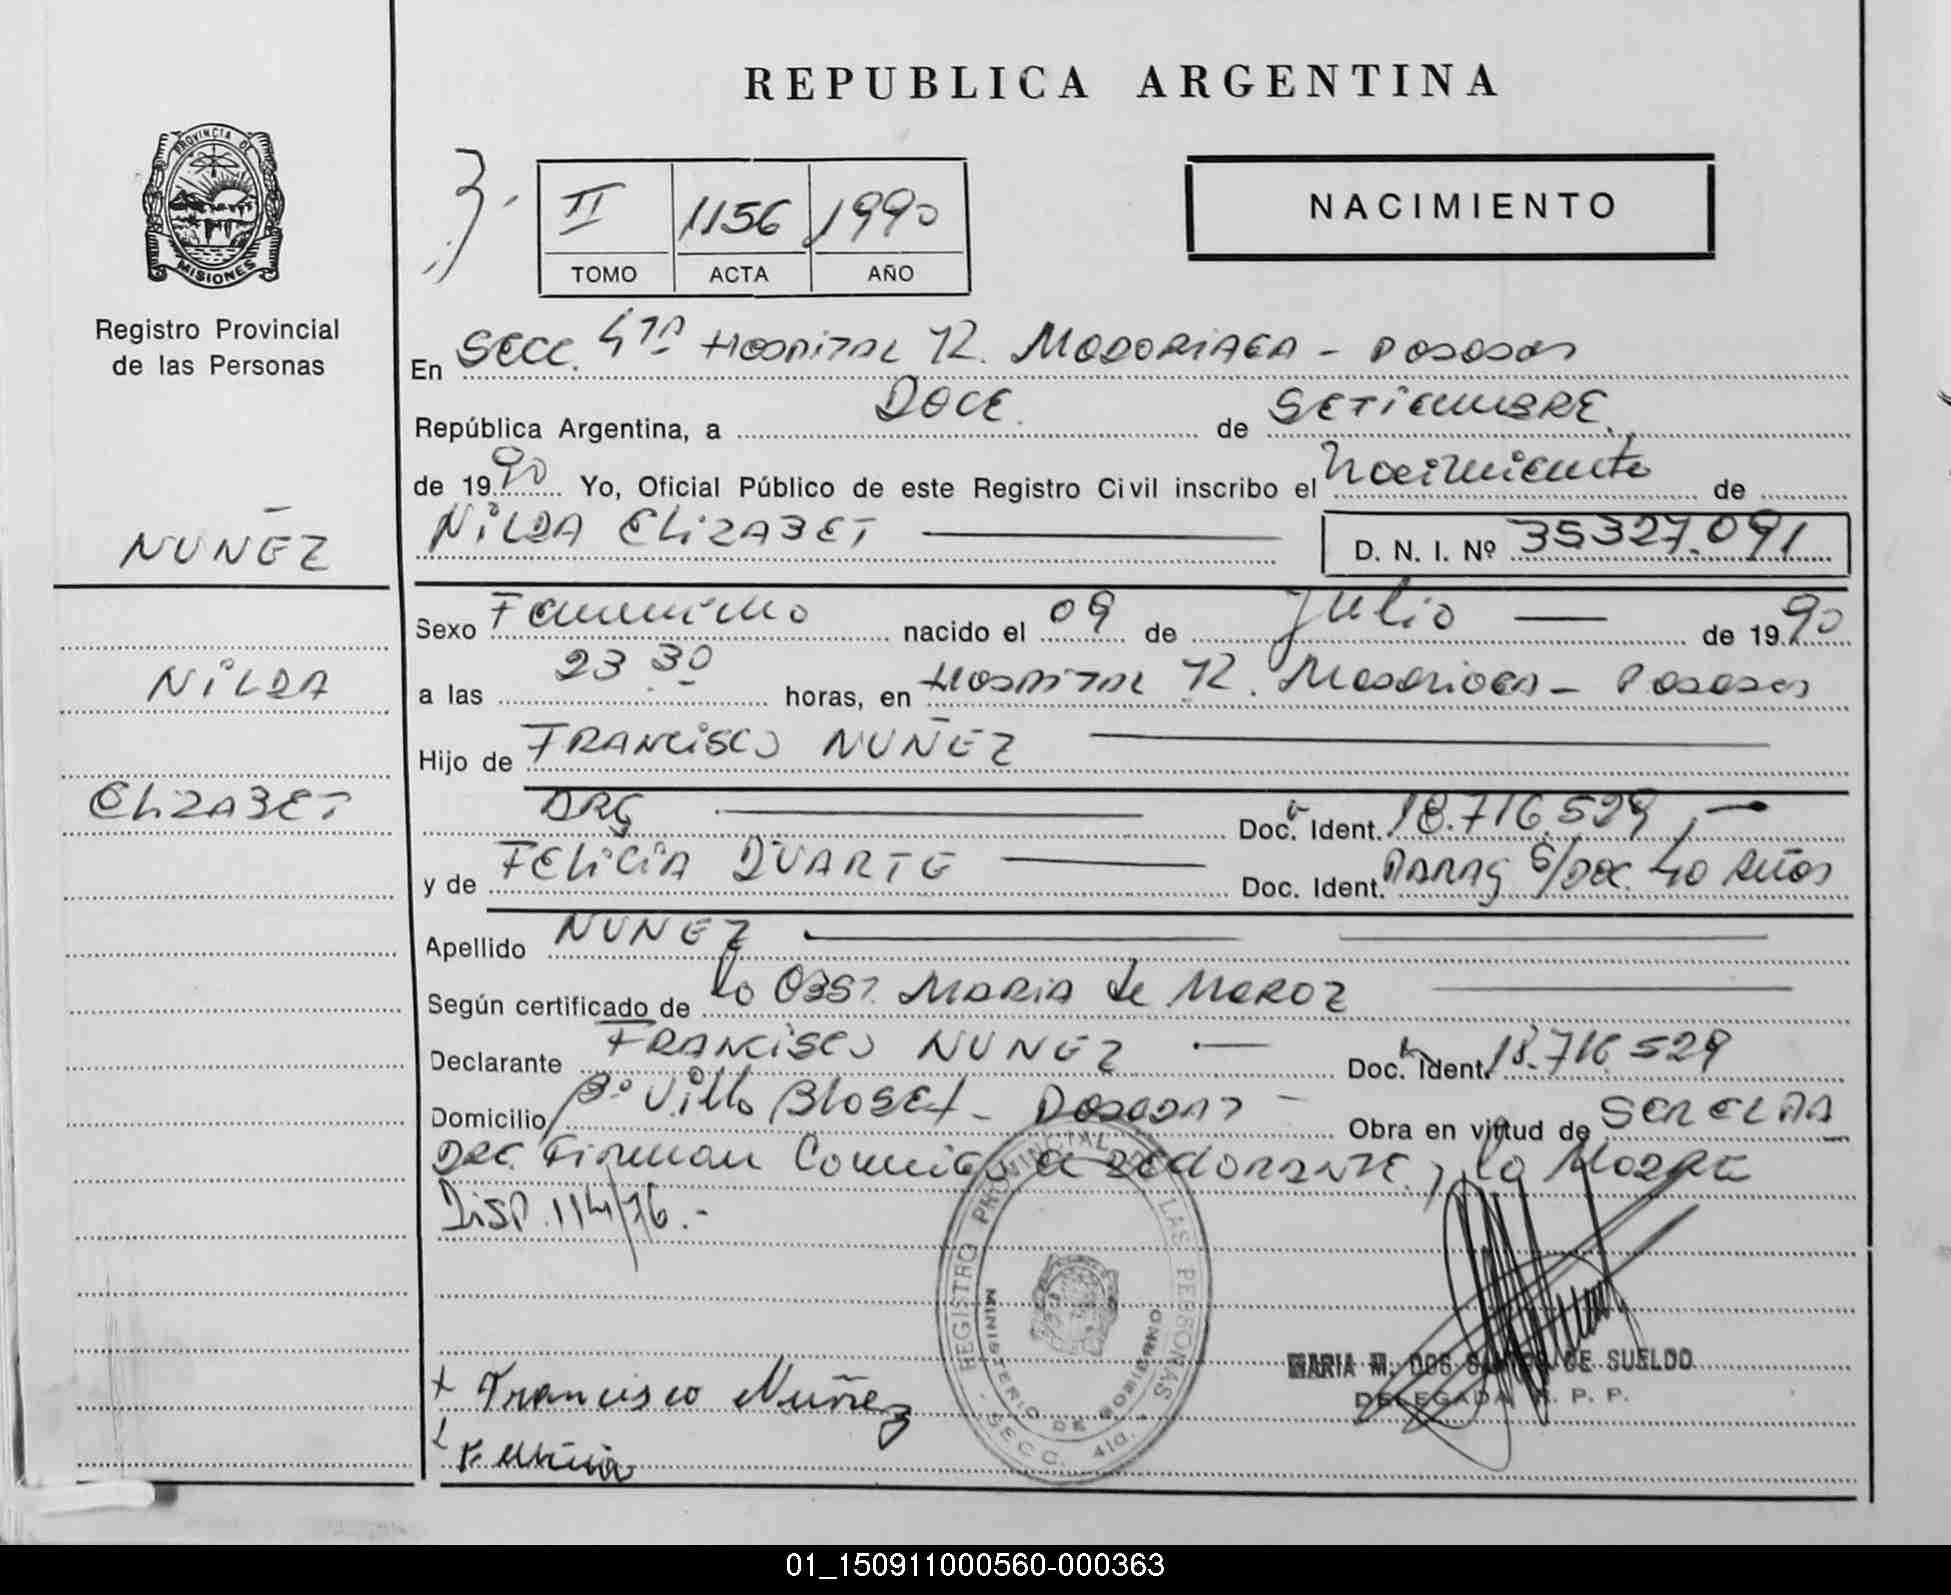 REPUBLICA ARGENTINA
PROVINCIA DE MISIONES
Registro Provincial
de las Personas
II 1156 1990
TOMO ACTA AÑO
NACIMIENTO
En SECC. 4ta HOSPITAL R. MADARIAGA - POSADAS
República Argentina, a DOCE de SETIEMBRE
de 1990 Yo, Oficial Público de este Registro Civil inscribo el Nacimiento de
NUÑEZ
NILDA ELIZABET D. N. I. Nº 35327.091
Sexo Femenino nacido el 09 de Julio de 1990
NILDA
a las 23 30 horas, en HOSPITAL R. Madariaga - Posadas
Hijo de FRANCISCO NUÑEZ
ELIZABET
ARG Doc. Ident. 18.716.529
y de FELICIA DUARTE Doc. Ident. PARAG S/DOC. 40 AÑOS
Apellido NUNEZ
Según certificado de la OBST. MARIA de MEROZ
Declarante FRANCISCO NUNEZ Doc. Ident. 18.716.529
Domicilio Bº Villa BLOSET - POSADAS - Obra en virtud de SER EL PA
DRE. Firman Conmigo el DECLARANTE y la MADRE
DISP. 114/76.-
REGISTRO PROVINCIAL DE LAS PERSONAS
MINISTERIO DE GOBIERNO
SECC. 4ta.
MARIA M. DOS SANTOS DE SUELDO
DELEGADA R. P. P.
Francisco Nuñez
01_150911000560-000363